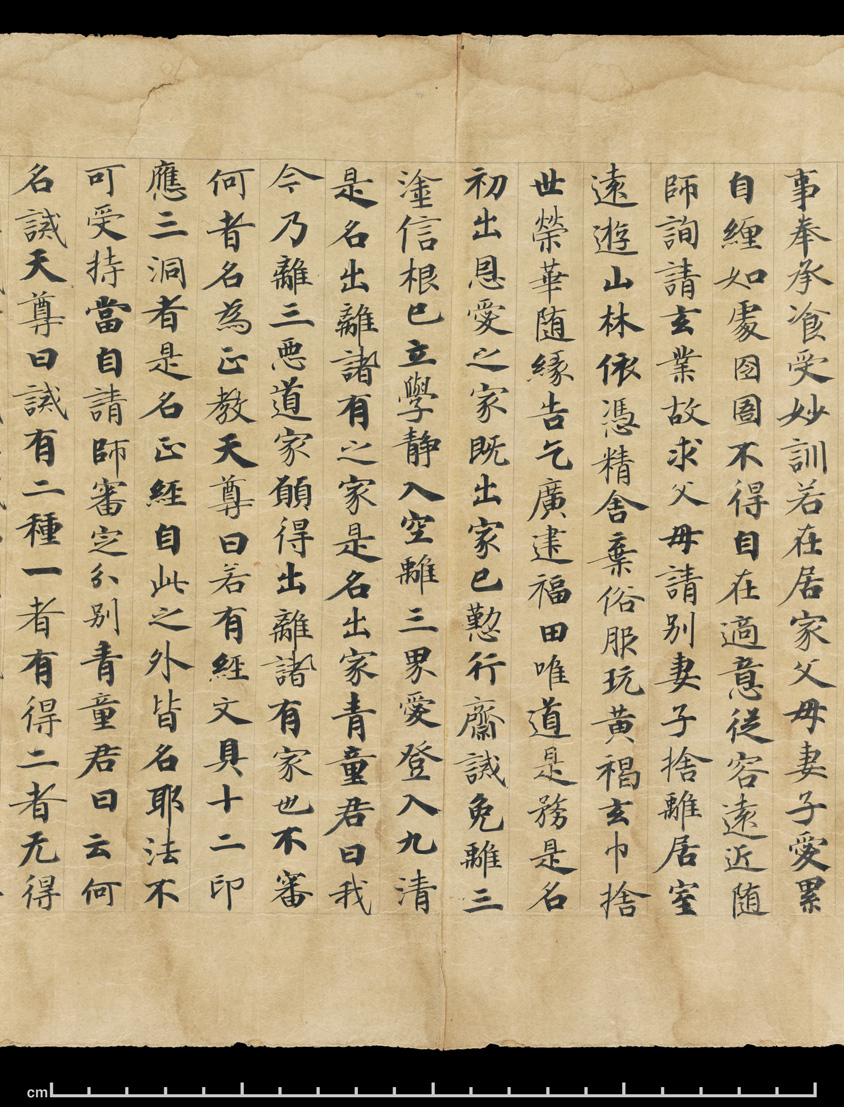 事奉承飡受妙訓若在居家父母妻子愛累
自纏如處囹圄不得自在適意從容遠近随
師詢請玄業故求父母請别妻子捨離居室
遠遊山林依憑精舍棄俗服玩黃褐玄巾捨
世榮華随緣告乞廣建福田唯道是務是名
初出恩愛之家既出家已懃行齋誡免離三
塗信根已立學静入空離三界愛登入九清
是名出離諸有之家是名出家青童君曰我
今乃離三惡道家願得出離諸有家也不審
何者名為正教天尊曰若有經文具十二印
應三洞者是名正經自此之外皆名耶法不
可受持當自請師審定分别青童君曰云何
名誡天尊曰誡有二種一者有得二者无得
cm